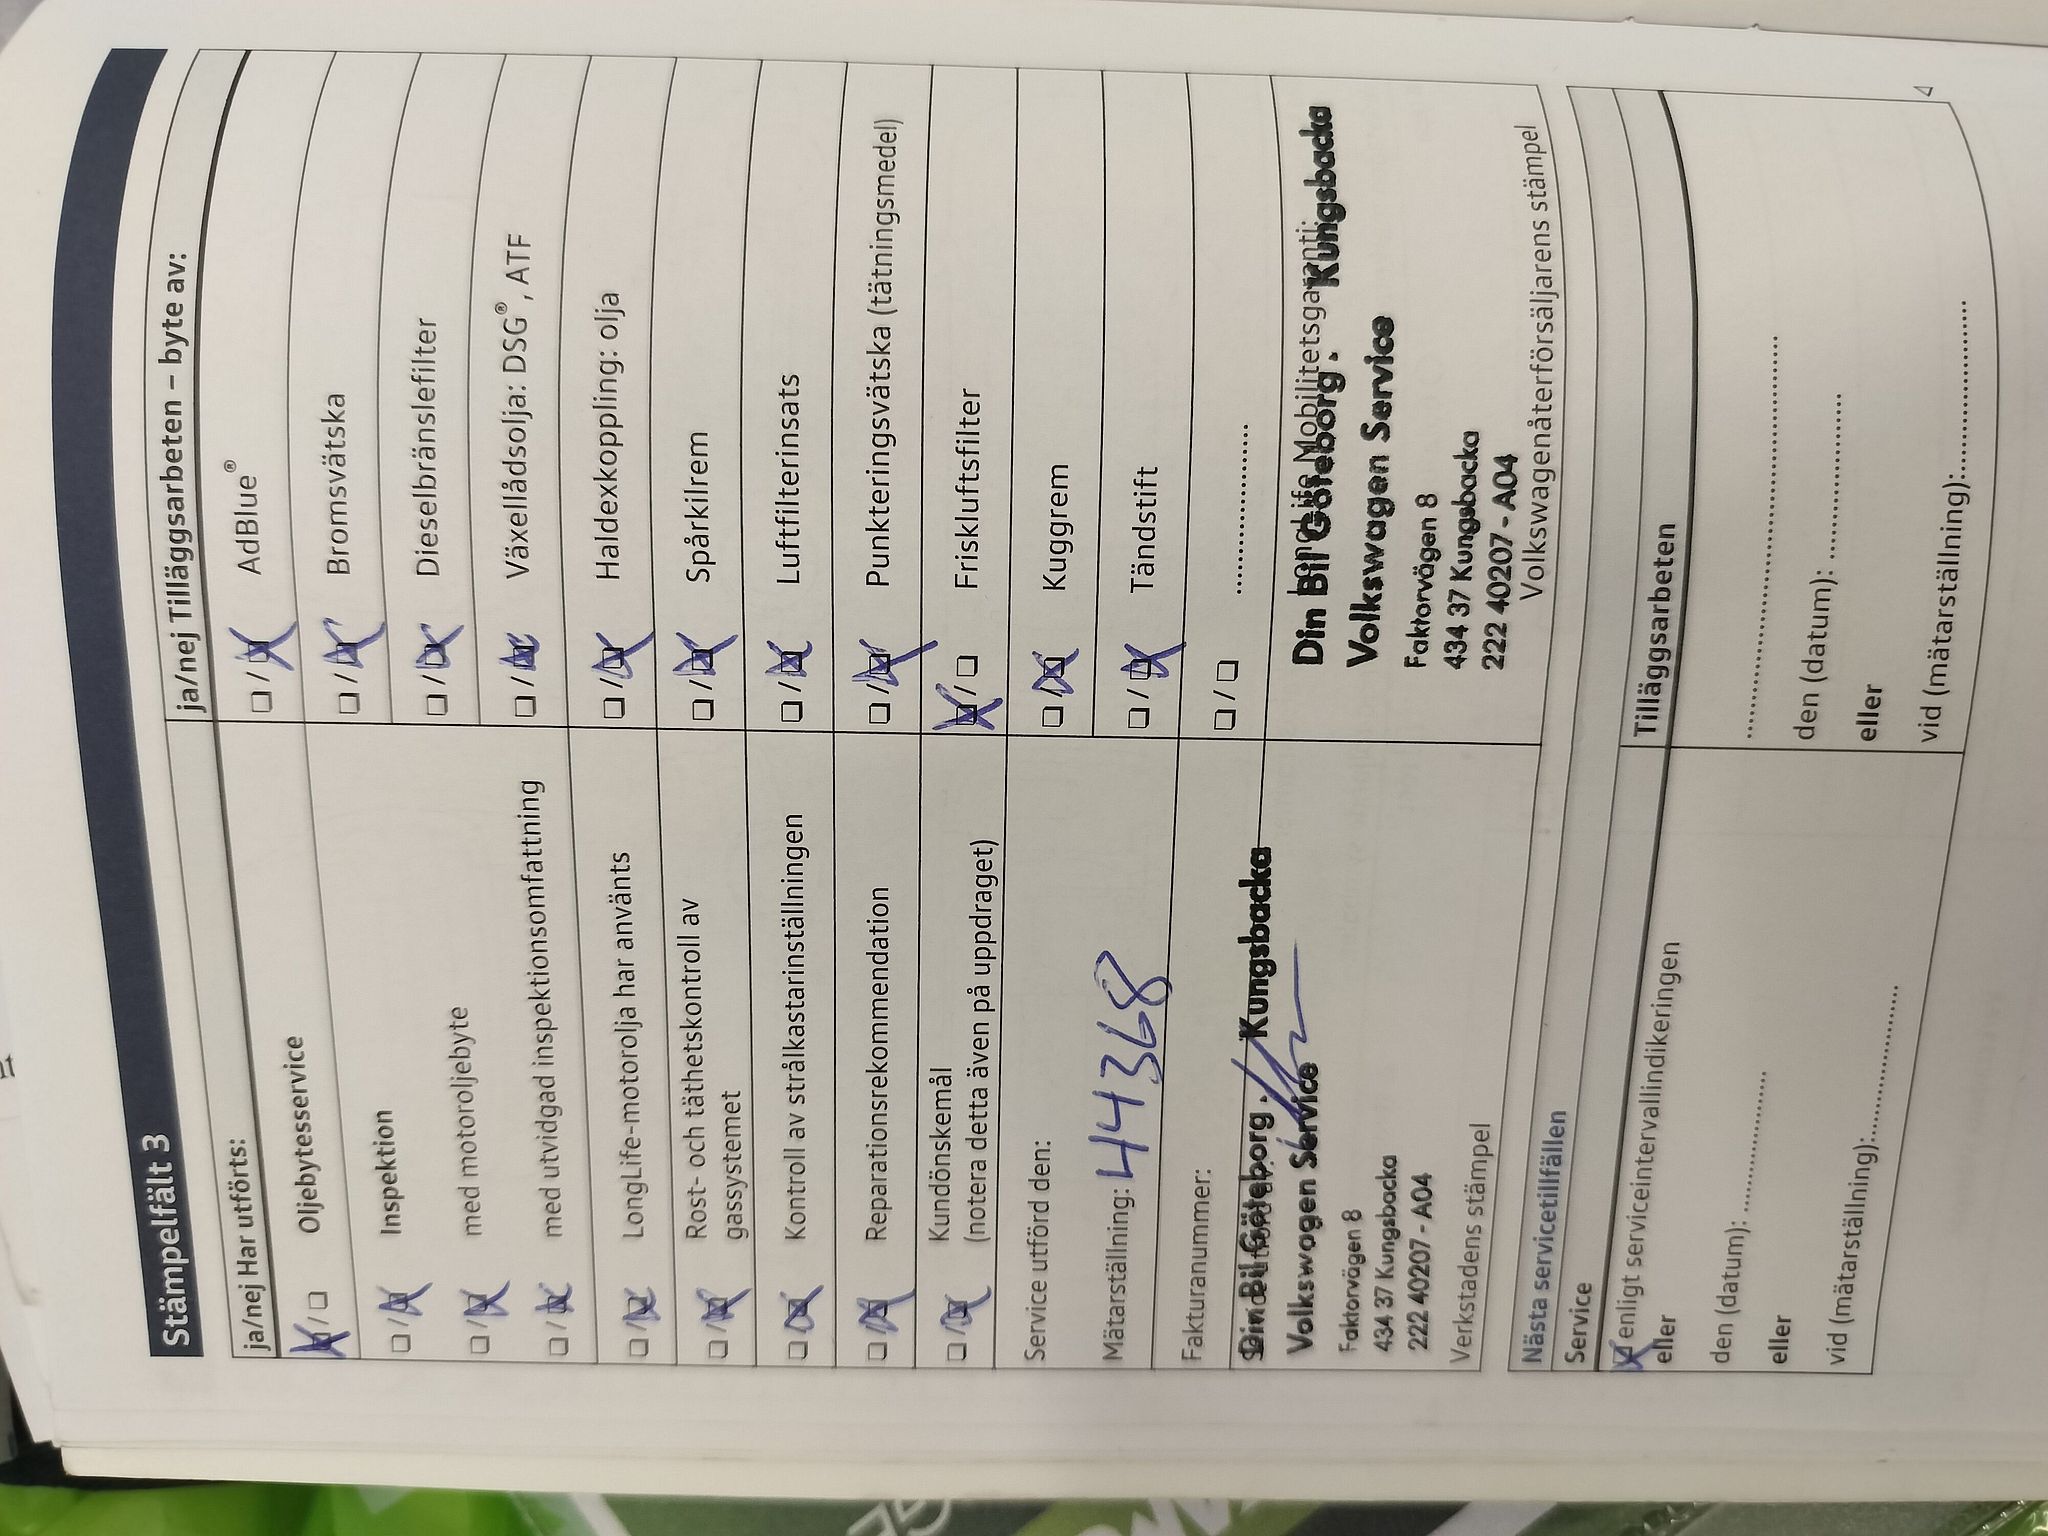 Stämpelfält 3
ja/nej Har utförts:
Oljebytesservice
Inspektion
med motoroljebyte
med utvidgad inspektionsomfattning
LongLife-motorolja har använts
Rost- och täthetskontroll av
gassystemet
Kontroll av strålkastarinställningen
Reparationsrekommendation
Kundönskemål
(notera detta även på uppdraget)
Service utförd den:
Mätarställning: 44368
Fakturanummer:
Din Bil Göteborg . Kungsbacka
Volkswagen Service
Faktorvägen 8
434 37 Kungsbacka
222 40207 - A04
Verkstadens stämpel
ja/nej Tilläggsarbeten – byte av:
AdBlue®
Bromsvätska
Dieselbränslefilter
Växellådsolja: DSG®, ATF
Haldexkoppling: olja
Spårkilrem
Luftfilterinsats
Punkteringsvätska (tätningsmedel)
Friskluftsfilter
Kuggrem
Tändstift
LongLife Mobilitetsgaranti:
Din Bil Göteborg . Kungsbacka
Volkswagen Service
Faktorvägen 8
434 37 Kungsbacka
222 40207 - A04
Volkswagenåterförsäljarens stämpel
Nästa servicetillfällen
Service
enligt serviceintervallindikeringen
eller
den (datum):
eller
vid (mätarställning):
Tilläggsarbeten
den (datum):
eller
vid (mätarställning):